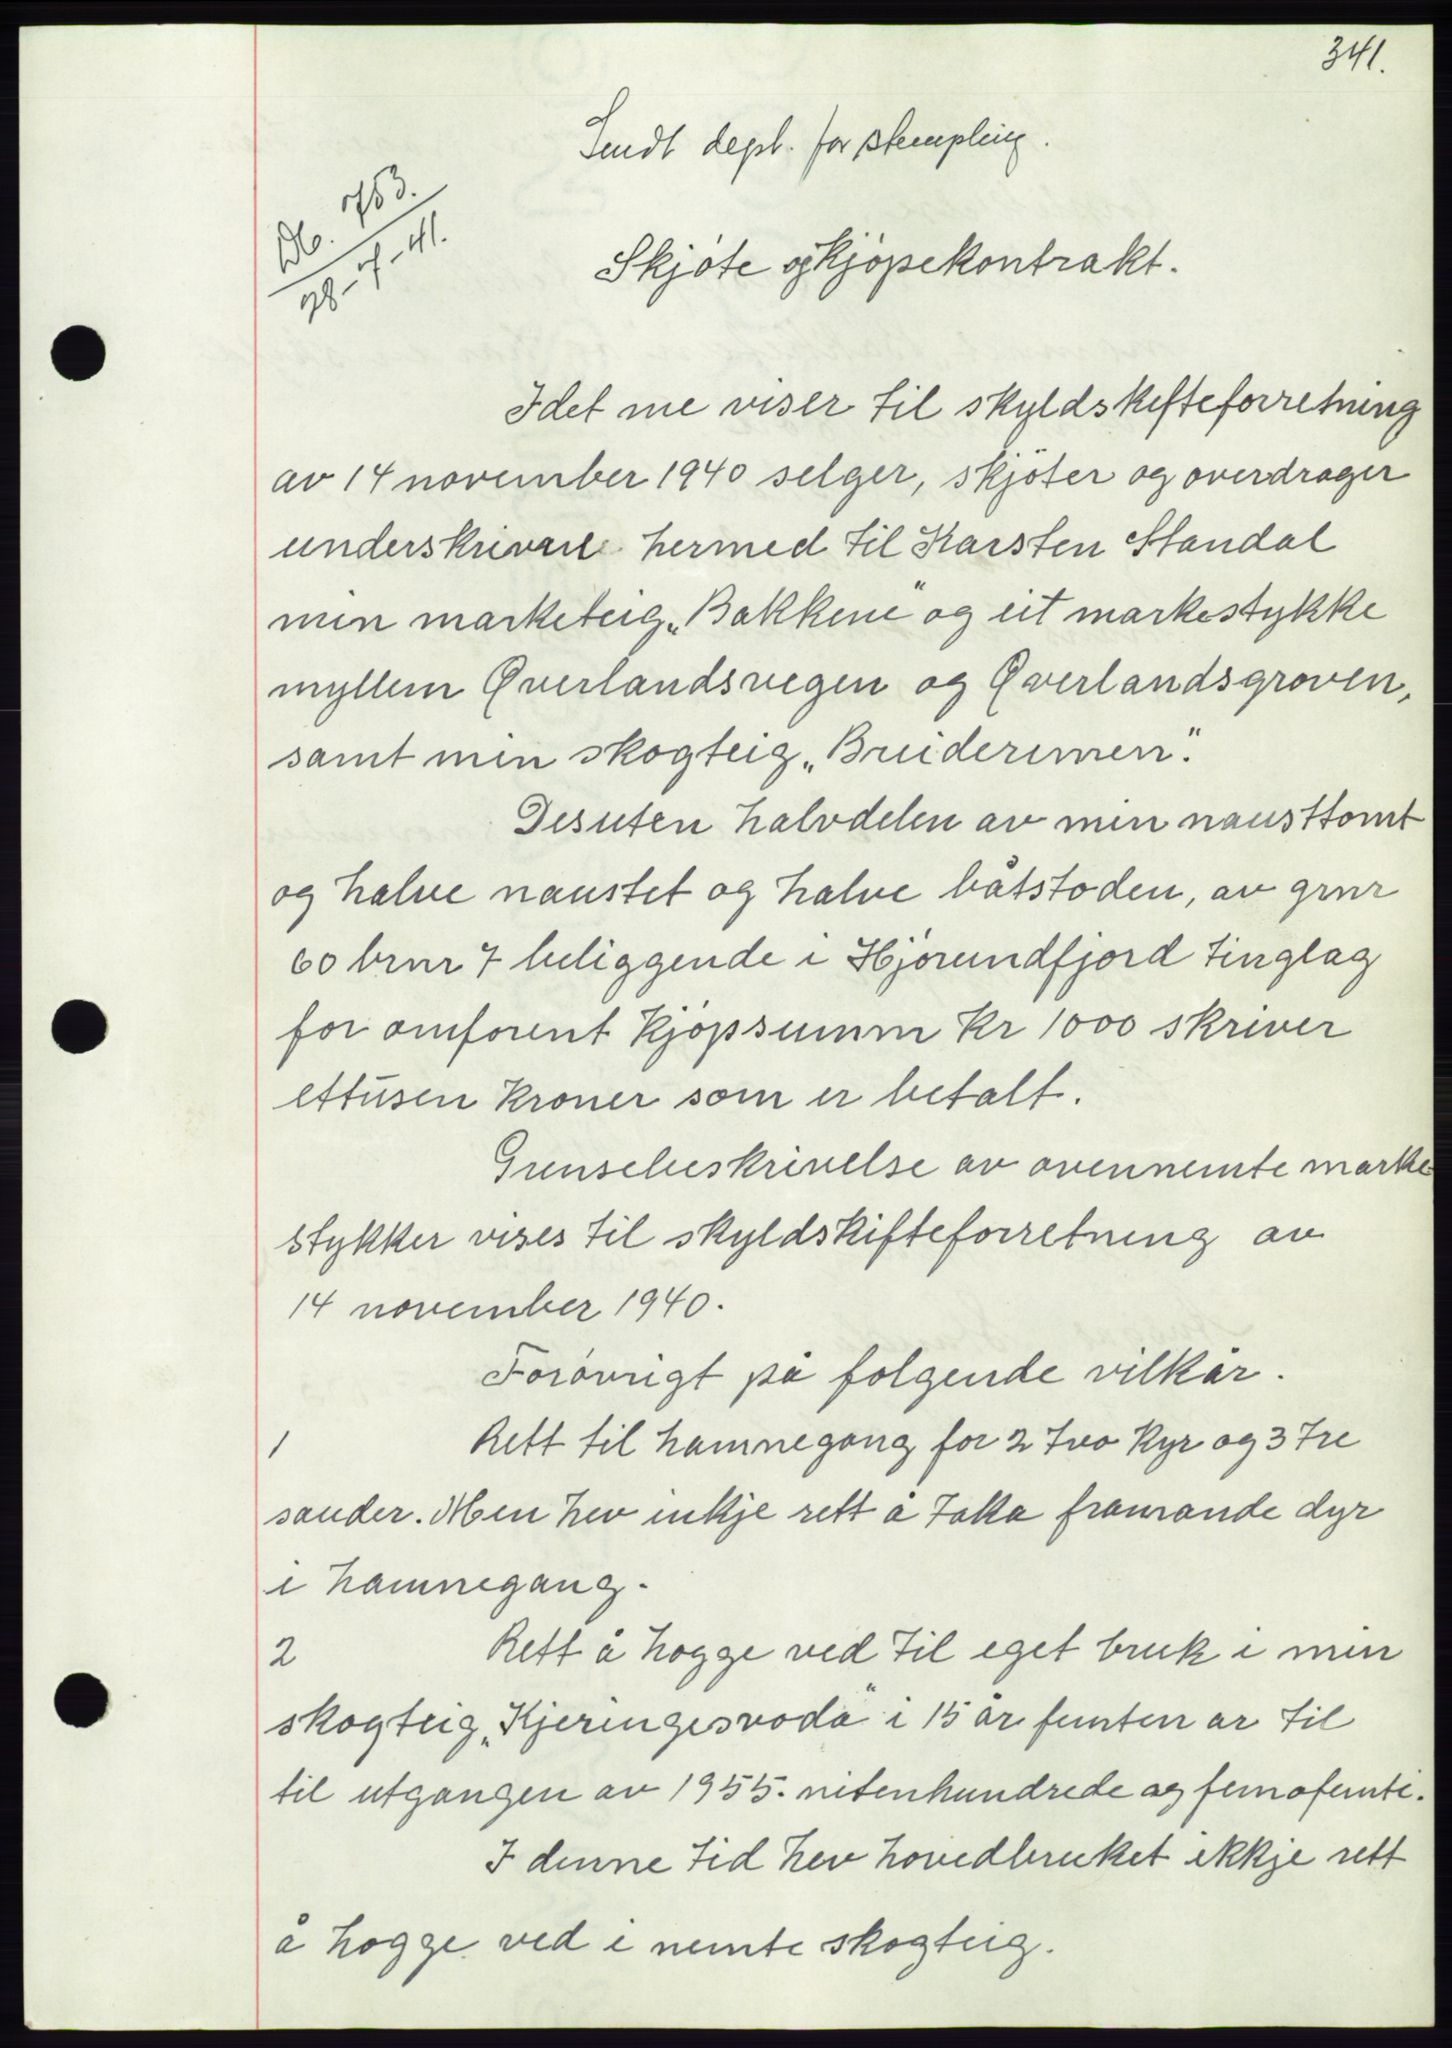 341.
Sendt dept. for stempling.
Db. 753.
28-7-41.
Skjóte og kjópekontrakt.
Idet me viser til skyldskifteforretning
av 14 november 1940 selger, skjöter og overdrager
underskrivne hermed til Karsten Standal
min marketeig „Bakkene" og eit markestykke
myllem Øverlandsvegen og Øverlandsgroven,
samt min skogteig „Breiderimen".
Desuten halvdelen av min nausttomt
og halve naustet og halve båtstoden, av grnr
60 brnr 7 beliggende i Hjórundfjord tinglag
for omforent kjópsumm kr 1000 skriver
ettusen kroner som er betalt.
Grensebeskrivelse av ovennemte marke
stykker vises til skyldskifteforretning av
14 november 1940.
Foróvrigt på folgende vilkår.
1 Rett til hamnegang for 2 tvo kyr og 3 tre
sauder. Men hev inkje rett å taka framande dyr
i hamnegang.
2 Rett å hogge ved til eget bruk i min
skogteig „Kjeringesvoda" i 15 år femten ar til
til utgangen av 1955. nitenhundrede og femofemti.
I denne tid hev hovedbruket ikkje rett
å hogge ved i nemte skogteig.